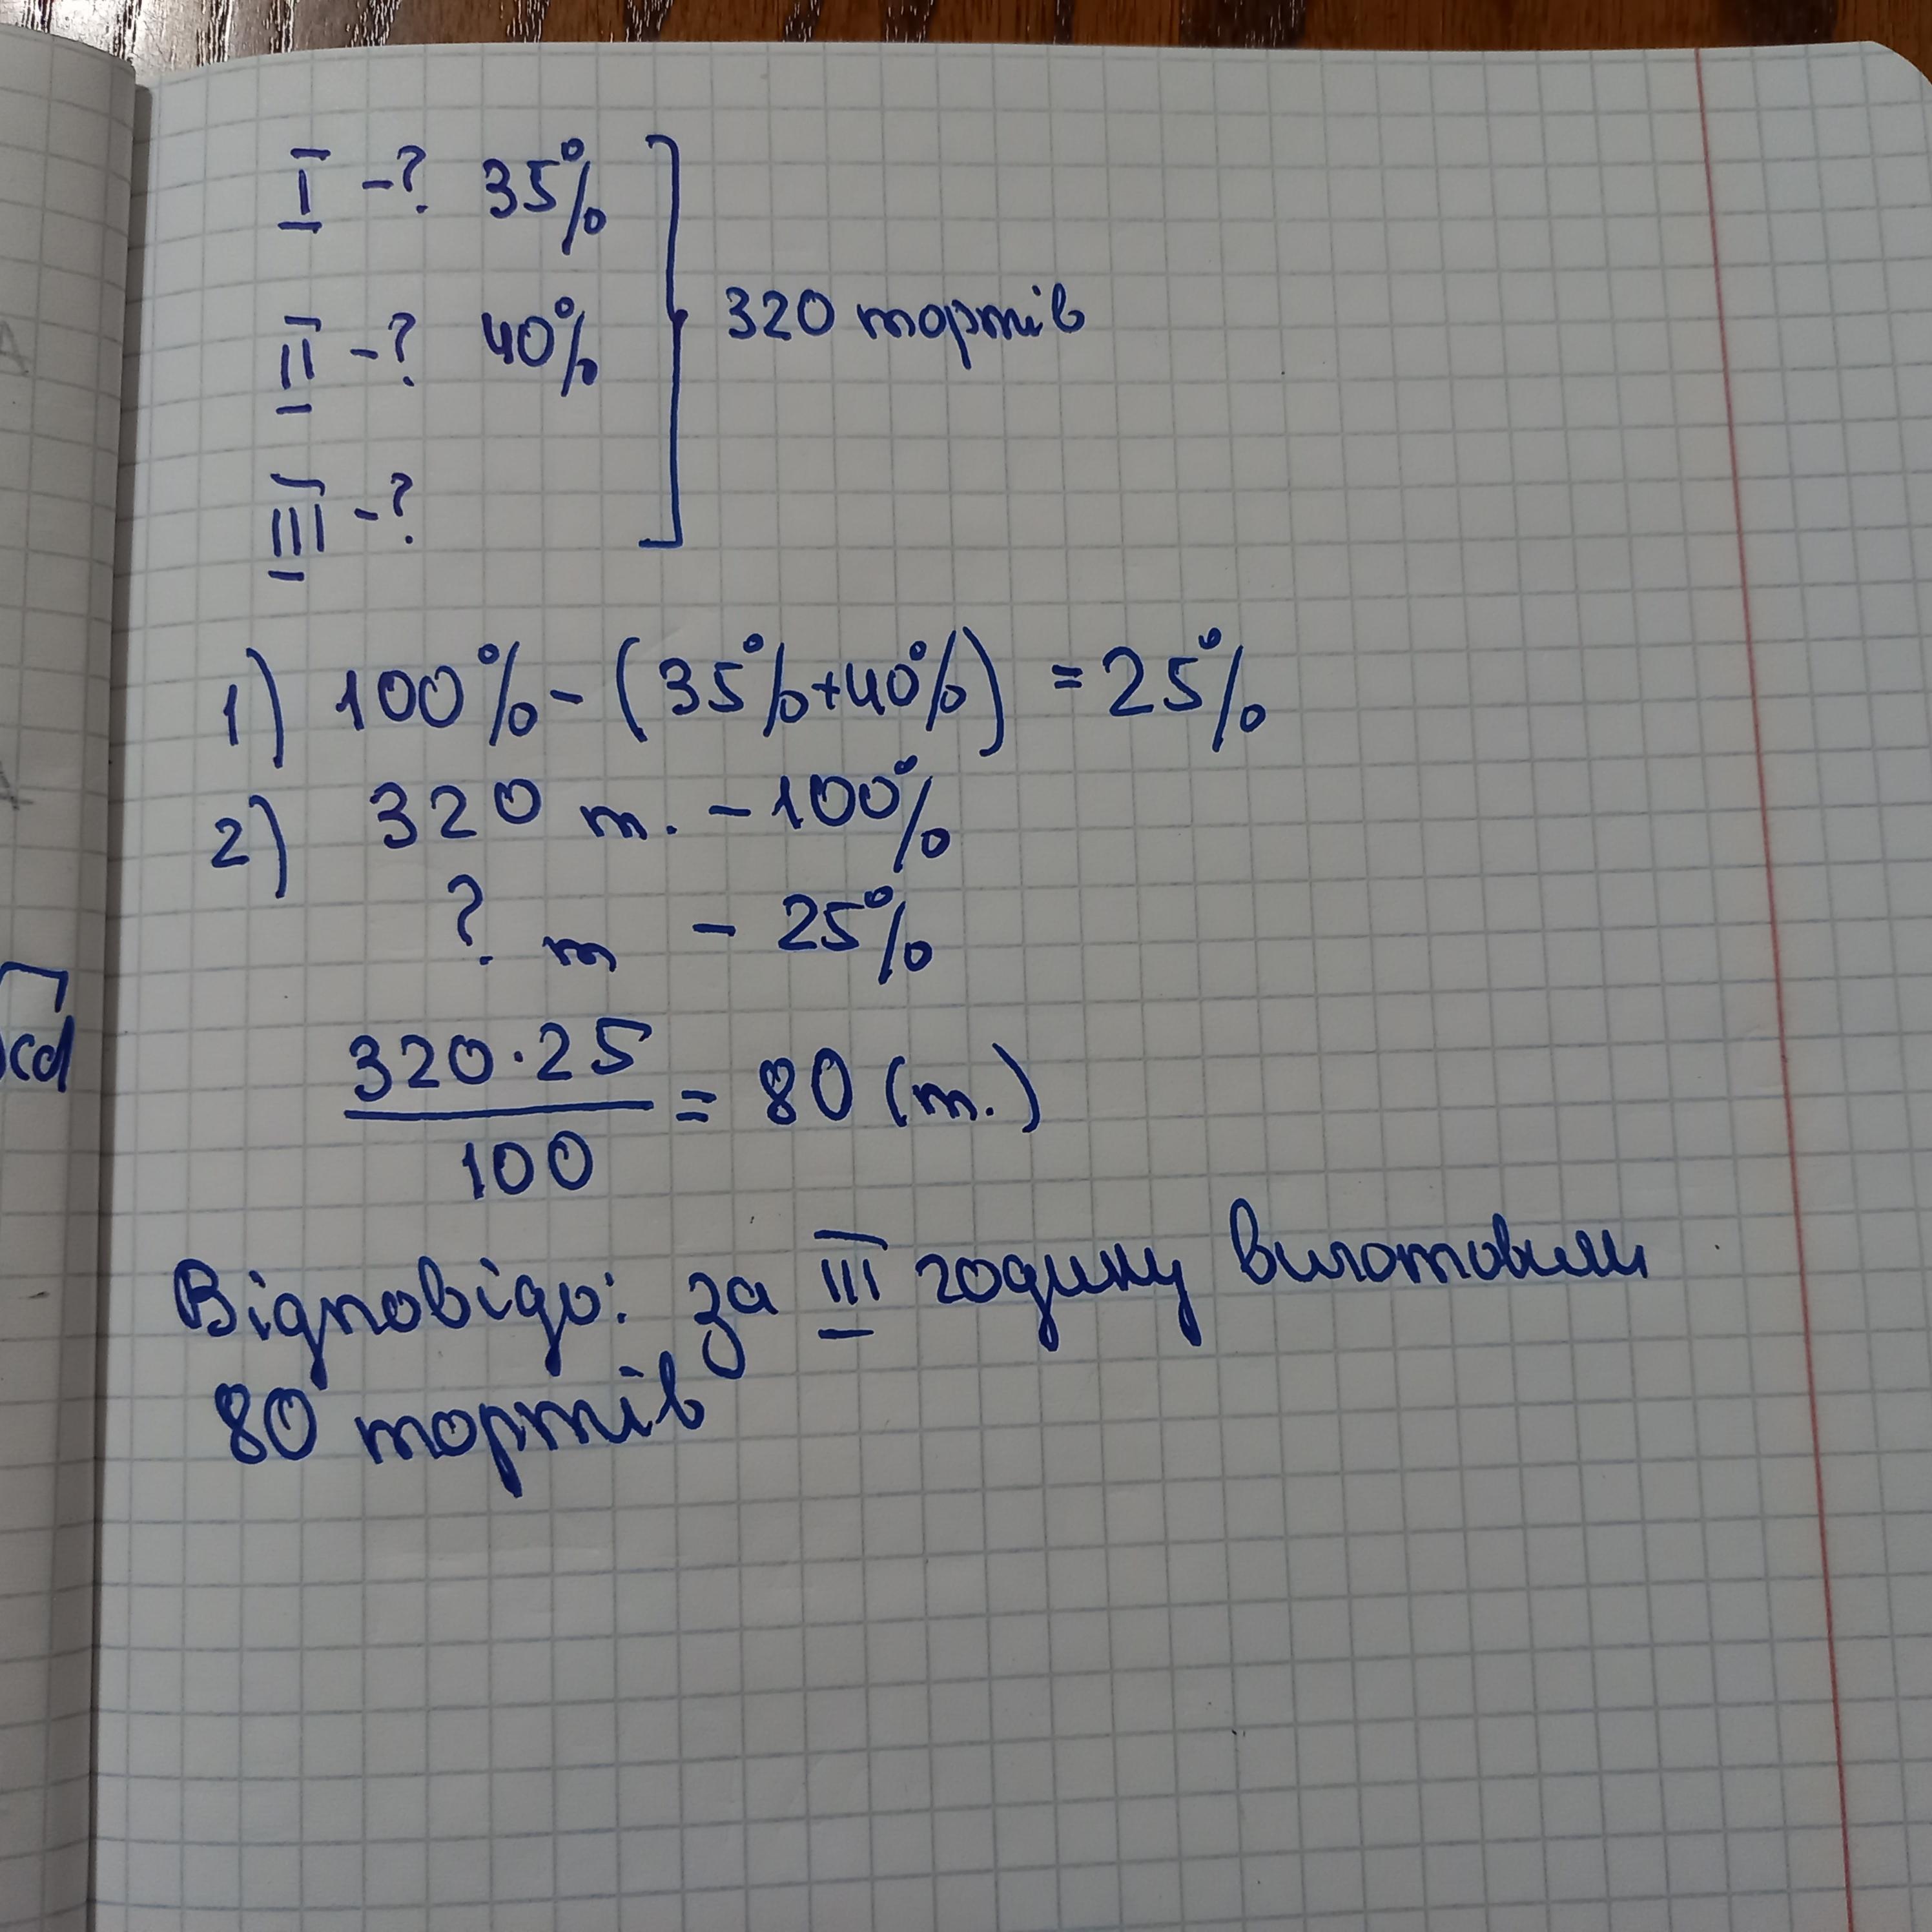 I -? 35%
II -? 40%
III -?
320 тортів
1) 100% - (35%+40%) = 25%
2) 320 т. - 100%
? т - 25%
320·25
100
= 80 (т.)
Відповідь: за III годину виготовили
80 тортів